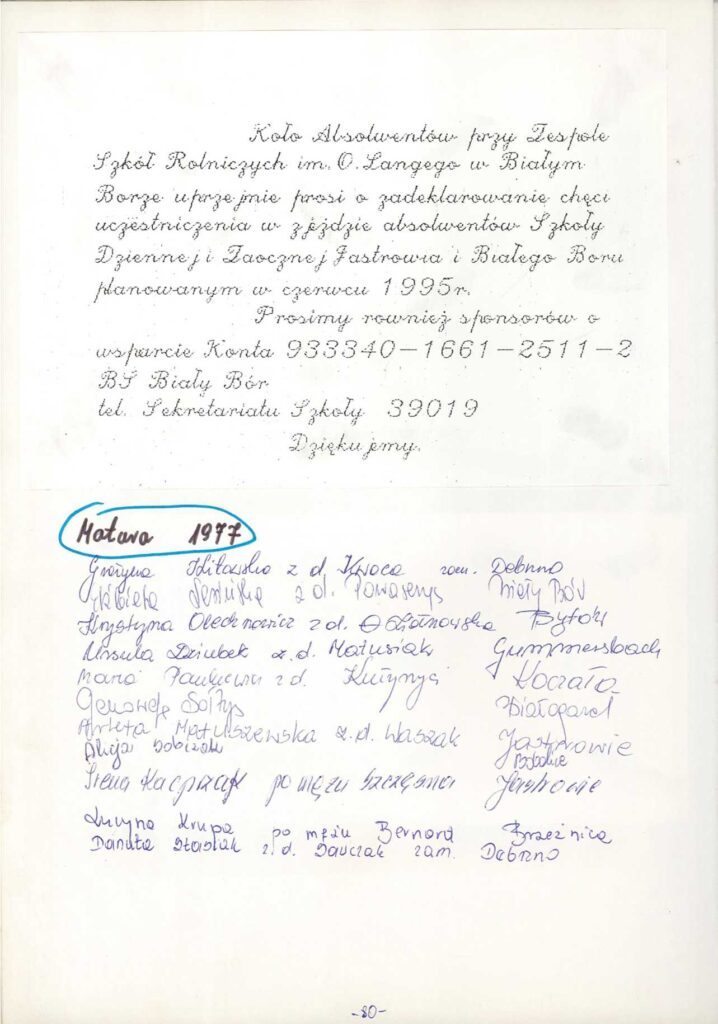 Koło Absolwentów przy Zespole
Szkół Rolniczych im. O. Langego w Białym
Borze uprzejmie prosi o zadeklarowanie chęci
uczestniczenia w zjeździe absolwentów Szkoły
Dziennej i Zaocznej Jastrowia i Białego Boru
planowanym w czerwcu 1995r.
Prosimy rownież sponsorów o
wsparcie Konta 933340-1661-2511-2
BS Biały Bór
tel. Sekretariatu Szkoły 39019
Dziękujemy.
Matura 1977
Grażyna z d. Kwoca zam. Debrzno
Elżbieta z d. Biały Bór
Krystyna Olechnowicz z d. Bytów
Urszula Dziubek z. d. Matusiak Gummersbach
Maria z d. Koczała
Genowefa Sołtys Białogard
Arleta Matuszewska z. d. Waszak Jastrowie
Alicja
Irena Kacprzak po mężu Szczęsna Jastrowie
Lucyna Krupa po mężu Bernard Brzeźnica
Danuta Stasiak z. d. Sawczak zam. Debrzno
-80-